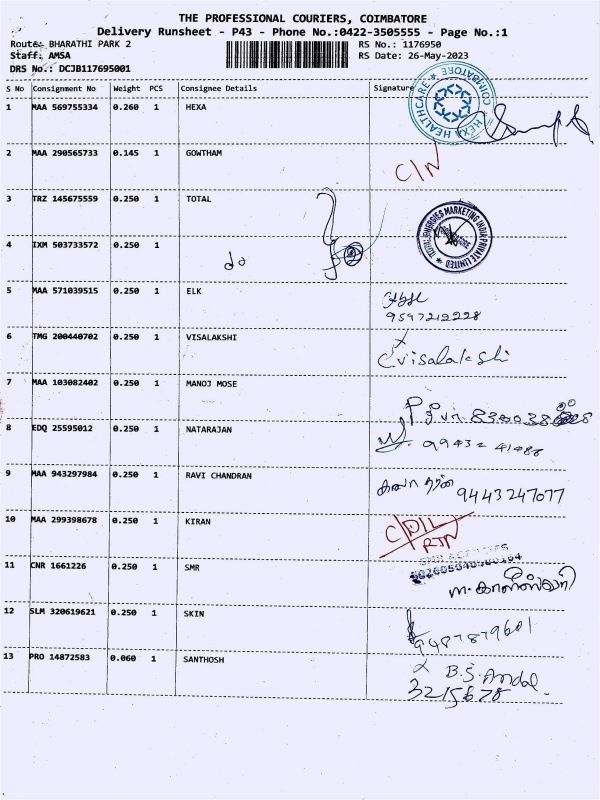 THE PROFESSIONAL COURIERS, COIMBATORE
Delivery Runsheet - P43 - Phone No.:0422-3505555 - Page No.:1
Route: BHARATHI PARK 2 RS No.: 1176950
Staff: AMSA RS Date: 26-May-2023
DRS No.: DCJB117695001
S No Consignment No Weight PCS Consignee Details Signature
1 MAA 569755334 0.260 1 HEXA
HEXA HEALTHCARE * COIMBATORE *
2 MAA 290565733 0.145 1 GOWTHAM C/N
3 TRZ 145675559 0.250 1 TOTAL
TOTAL ENERGIES MARKETING INDIA PRIVATE LIMITED
4 IXM 503733572 0.250 1 do
5 MAA 571039515 0.250 1 ELK
9597212228
6 TMG 200440702 0.250 1 VISALAKSHI
C visalakshi
7 MAA 103082402 0.250 1 MANOJ MOSE
8 EDQ 25595012 0.250 1 NATARAJAN
99432 41488
9 MAA 943297984 0.250 1 RAVI CHANDRAN
9443247077
10 MAA 299398678 0.250 1 KIRAN
RTN
11 CNR 1661226 0.250 1 SMR
12 SLM 320619621 0.250 1 SKIN
9487879601
13 PRO 14872583 0.060 1 SANTHOSH
B.S. Andal
3215678